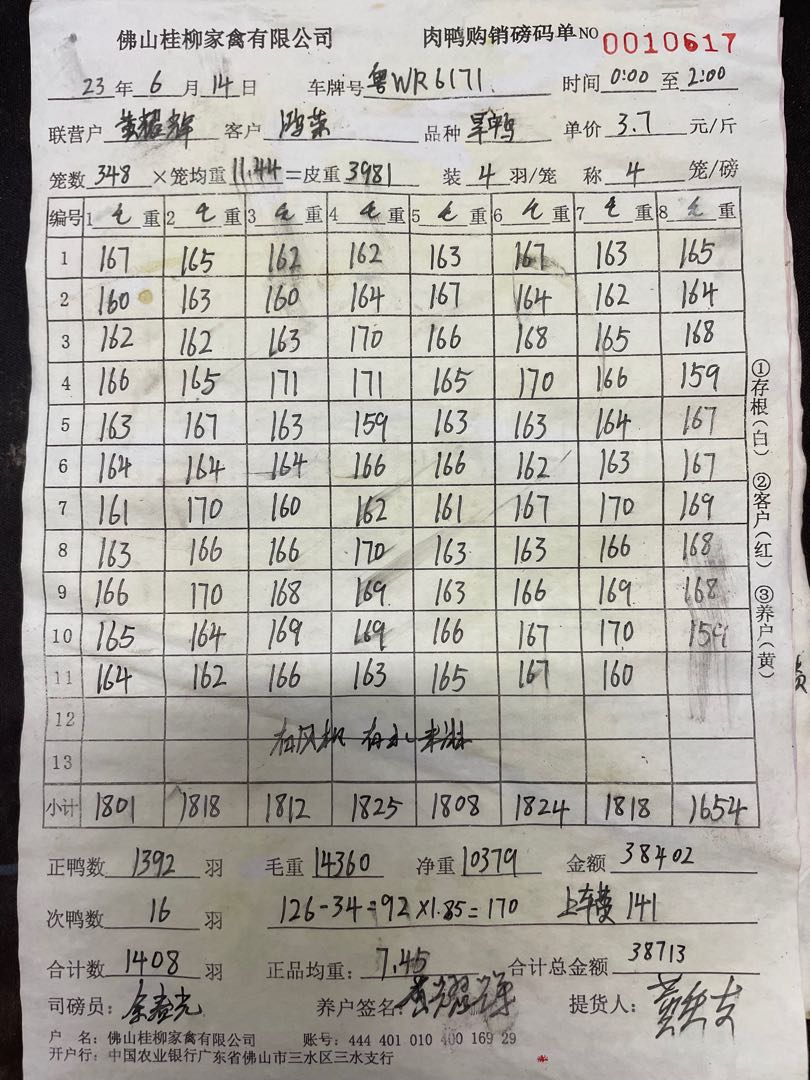 佛山桂柳家禽有限公司 肉鸭购销磅码单 NO 0010617
23 年 6 月 14 日 车牌号 粤WR6171 时间 0:00 至 2:00
联营户 黄耀辉 客户 鸿荣 品种 旱鸭 单价 3.7 元/斤
笼数 348 ×笼均重 11.44 =皮重 3981 装 4 羽/笼 称 4 笼/磅
编号 1 毛 重 2 毛 重 3 毛 重 4 毛 重 5 毛 重 6 毛 重 7 毛 重 8 毛 重
1 167 165 162 162 163 167 163 165
2 160 163 160 164 167 164 162 164
3 162 162 163 170 166 168 165 168
4 166 165 171 171 165 170 166 159
5 163 167 163 159 163 163 164 167
6 164 164 164 166 166 162 163 167
7 161 170 160 162 161 167 170 169
8 163 166 166 170 163 163 166 168
9 166 170 168 169 163 166 169 168
10 165 164 169 169 166 167 170 159
11 164 162 166 163 165 167 160
12
有风机 有水
13
小计 1801 1818 1812 1825 1808 1824 1818 1654
①存根(白) ②客户(红) ③养户(黄)
正鸭数 1392 羽 毛重 14360 净重 10379 金额 38402
次鸭数 16 羽 126-34=92×1.85=170 上车费 141
合计数 1408 羽 正品均重: 7.45 合计总金额 38713
司磅员: 养户签名: 黄耀辉 提货人:
户 名: 佛山桂柳家禽有限公司 账号: 444 401 010 400 169 29
开户行: 中国农业银行广东省佛山市三水区三水支行